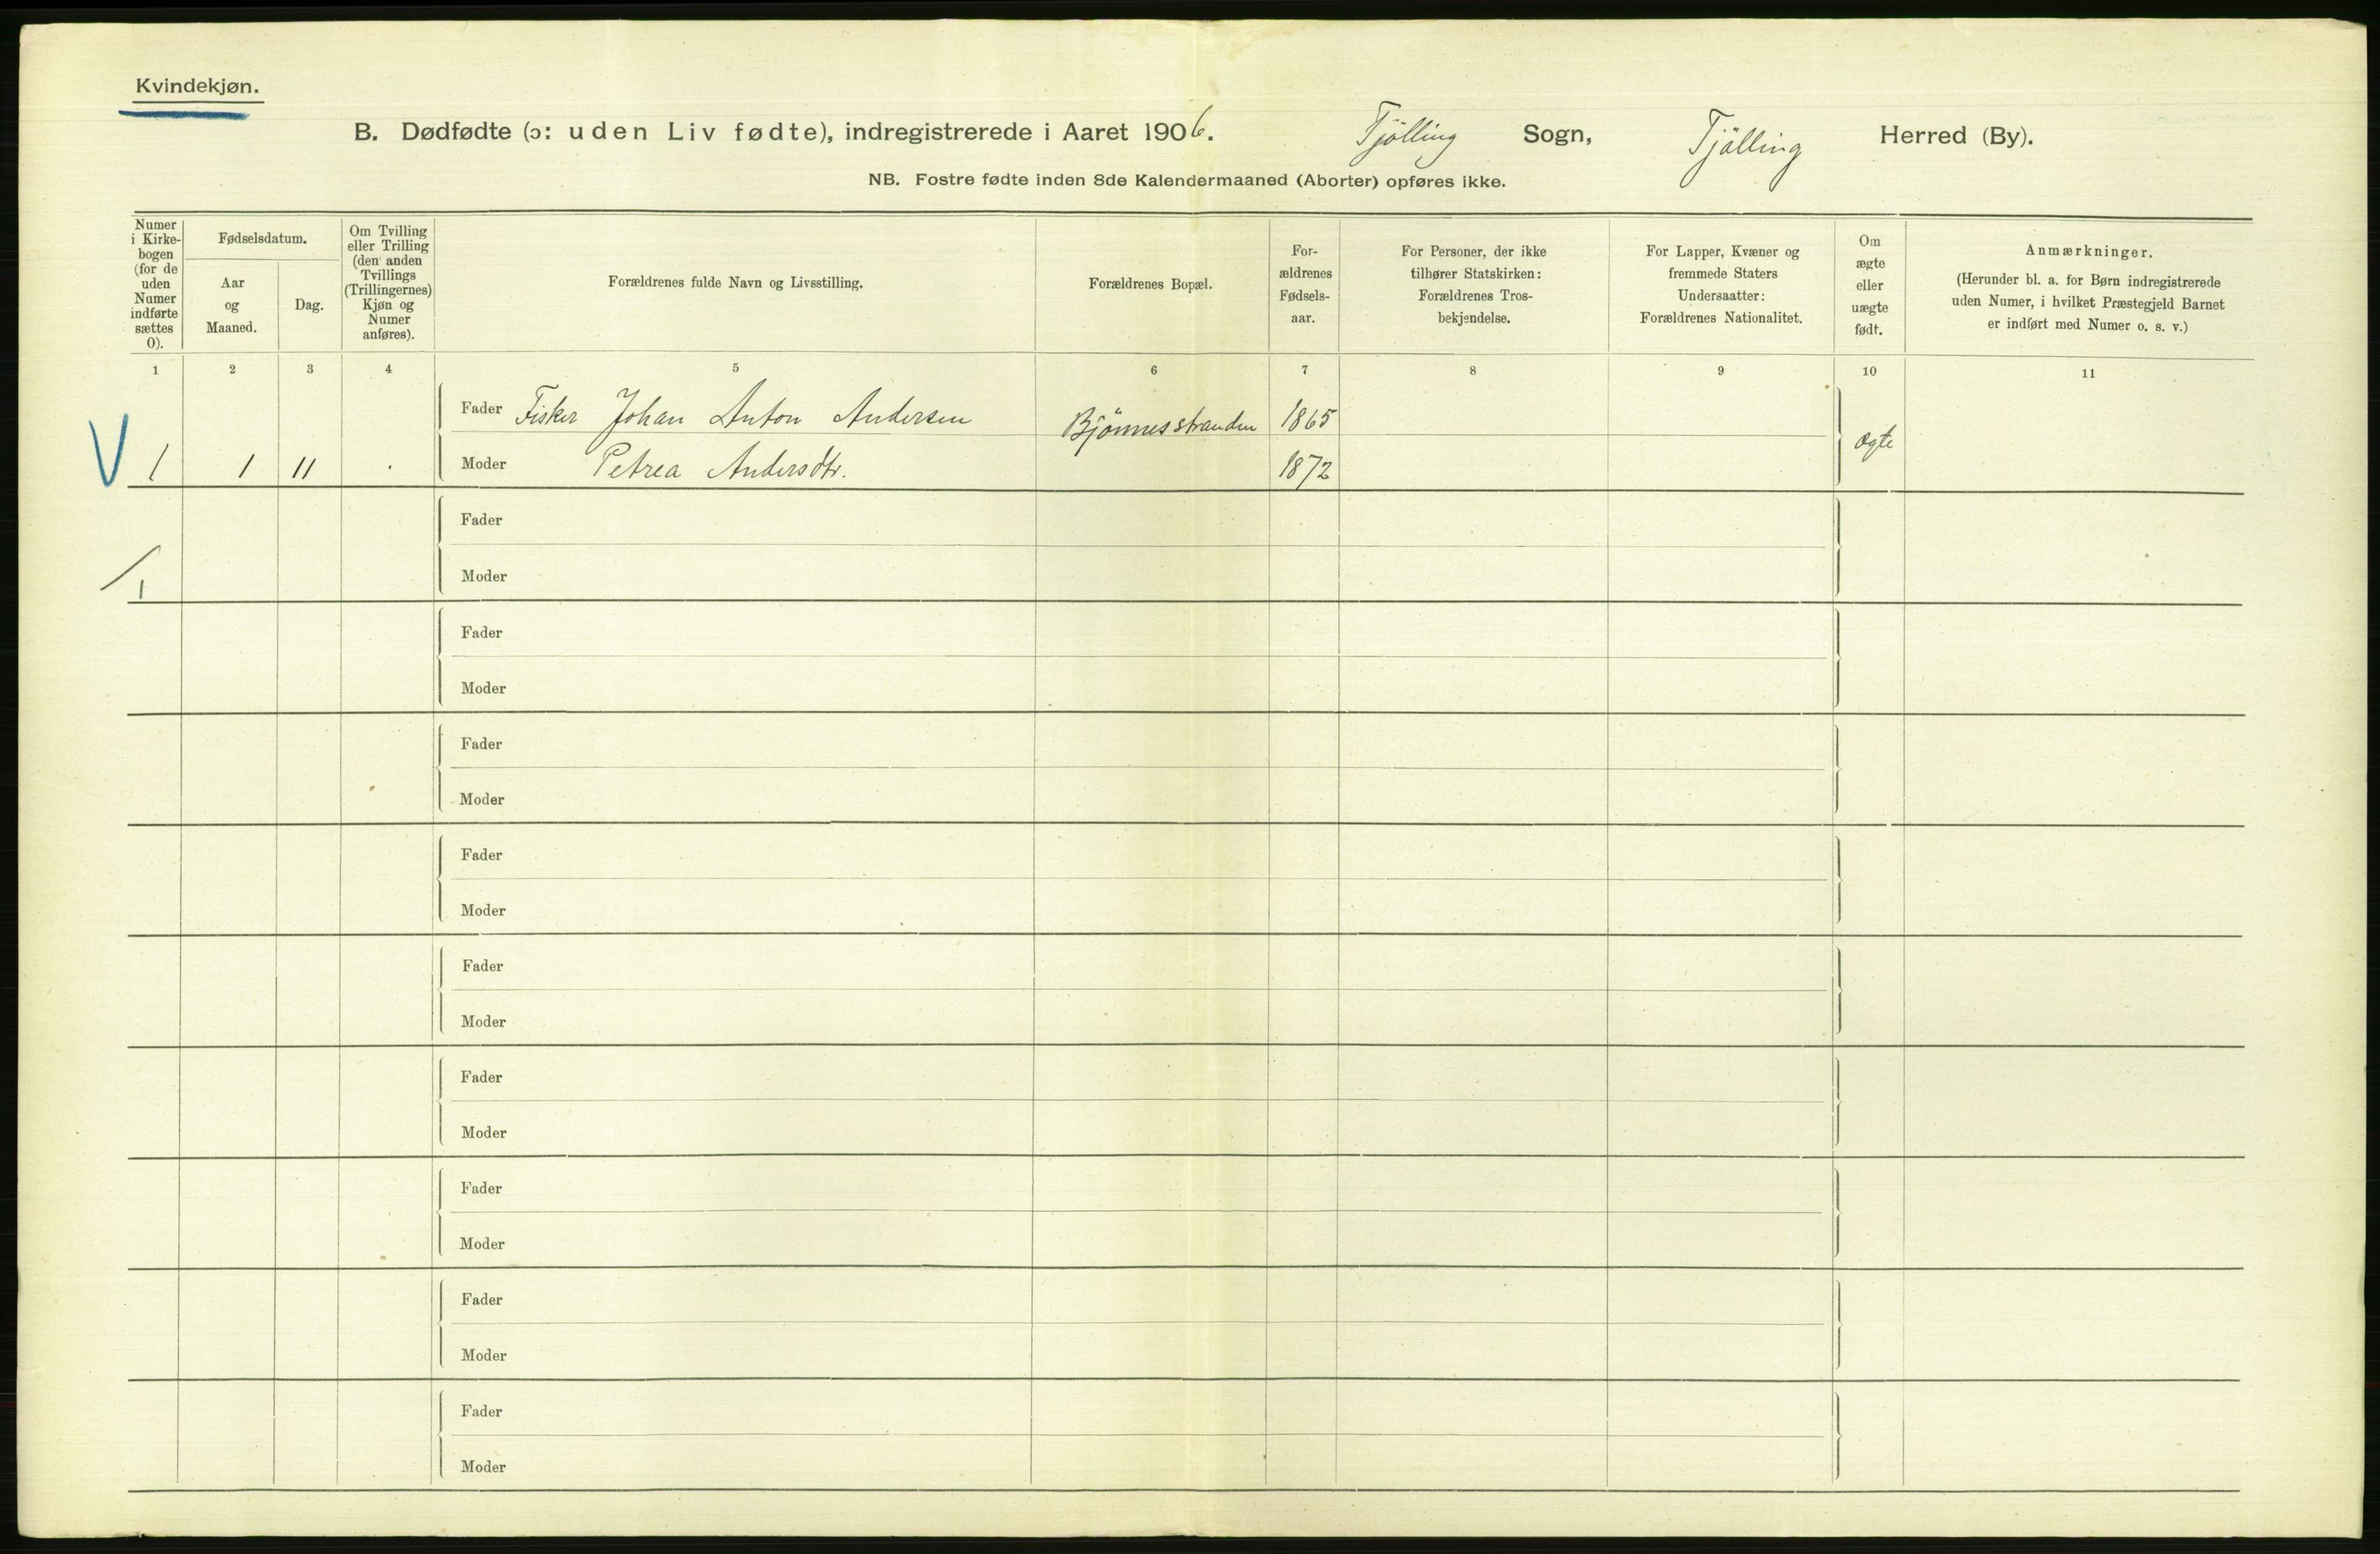 Kvindekjøn.
B. Dødfødte (ɔ: uden Liv fødte), indregistrerede i Aaret 1906. Tjölling Sogn, Tjölling Herred (By).
NB. Fostre fødte inden 8de Kalendermaaned (Aborter) opføres ikke.
Numer i Kirke-bogen (for de uden Numer indførte sættes 0).
Fødselsdatum.
Aar og Maaned.
Dag.
Om Tvilling eller Trilling (den anden Tvillings (Trillingernes) Kjøn og Numer anføres).
Forældrenes fulde Navn og Livsstilling.
Forældrenes Bopæl.
For-ældrenes Fødsels-aar.
For Personer, der ikke tilhører Statskirken: Forældrenes Tros-bekjendelse.
For Lapper, Kvæner og fremmede Staters Undersaatter: Forældrenes Nationalitet.
Om ægte eller uægte født.
Anmærkninger.
(Herunder bl. a. for Børn indregistrerede uden Numer, i hvilket Præstegjeld Barnet er indført med Numer o. s. v.)
1 2 3 4 5 6 7 8 9 10 11
Fader Fisker Johan Anton Andersen Bjönnesstranden 1865 ægte
V 1 1 11 . Moder Petrea Andersdtr. 1872
Fader
/1 Moder
Fader
Moder
Fader
Moder
Fader
Moder
Fader
Moder
Fader
Moder
Fader
Moder
Fader
Moder
Fader
Moder